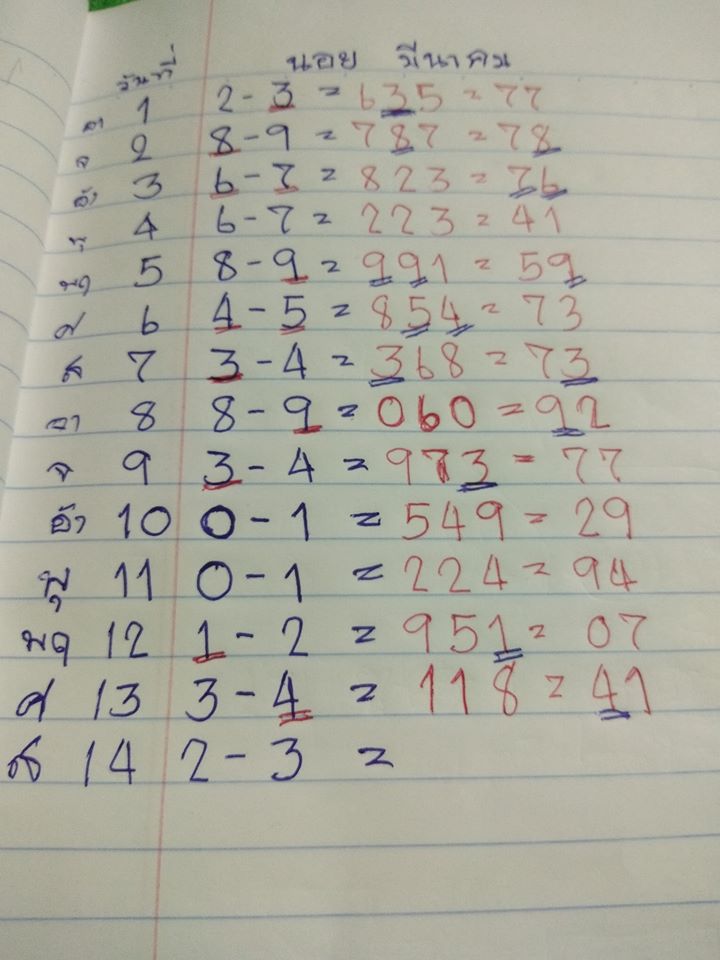 วันที่ นอย มีนาคม
อา 1 2 - 3 = 635 = 77
จ 2 8 - 9 = 787 = 78
อัง 3 6 - 7 = 823 = 76
พุ 4 6 - 7 = 223 = 41
พฤ 5 8 - 9 = 991 = 59
ศ 6 4 - 5 = 854 = 73
ส 7 3 - 4 = 368 = 73
อา 8 8 - 9 = 060 = 92
จ 9 3 - 4 = 973 = 77
อัง 10 0 - 1 = 549 = 29
พุ 11 0 - 1 = 224 = 94
พฤ 12 1 - 2 = 951 = 07
ศ 13 3 - 4 = 118 = 41
ส 14 2 - 3 =